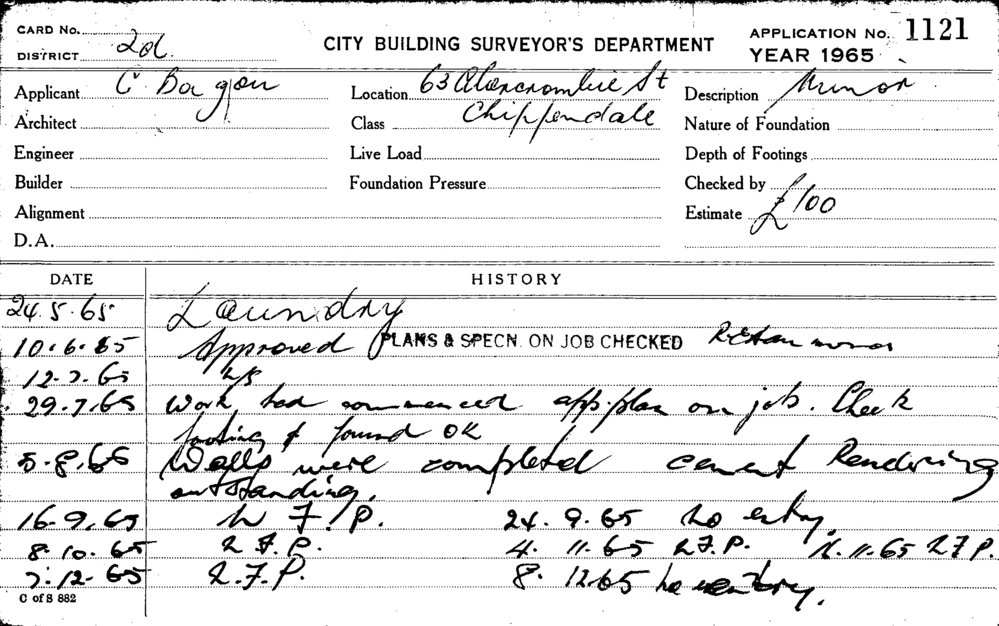 CARD No.
DISTRICT 2d.
CITY BUILDING SURVEYOR'S DEPARTMENT
APPLICATION No. 1121
YEAR 1965
Applicant C Bargon
Location 63 Abercrombie St
Description Minor
Architect
Class Chippendale
Nature of Foundation
Engineer
Live Load
Depth of Footings
Builder
Foundation Pressure
Checked by
Alignment
Estimate £100
D.A.
DATE HISTORY
24.5.65 Laundry
10.6.65 Approved PLANS & SPECN. ON JOB CHECKED
12.7.65
29.7.65 Work had commenced app. plan on job. Check
footing & found OK
5.8.65 Walls were completed cement Rendering
outstanding.
16.9.65 W.F.P. 24.9.65 No entry.
8.10.65 W.F.P. 4.11.65 W.F.P. 11.65 W.F.P.
7.12.65 W.F.P. 8.12.65 No entry.
C of S 882